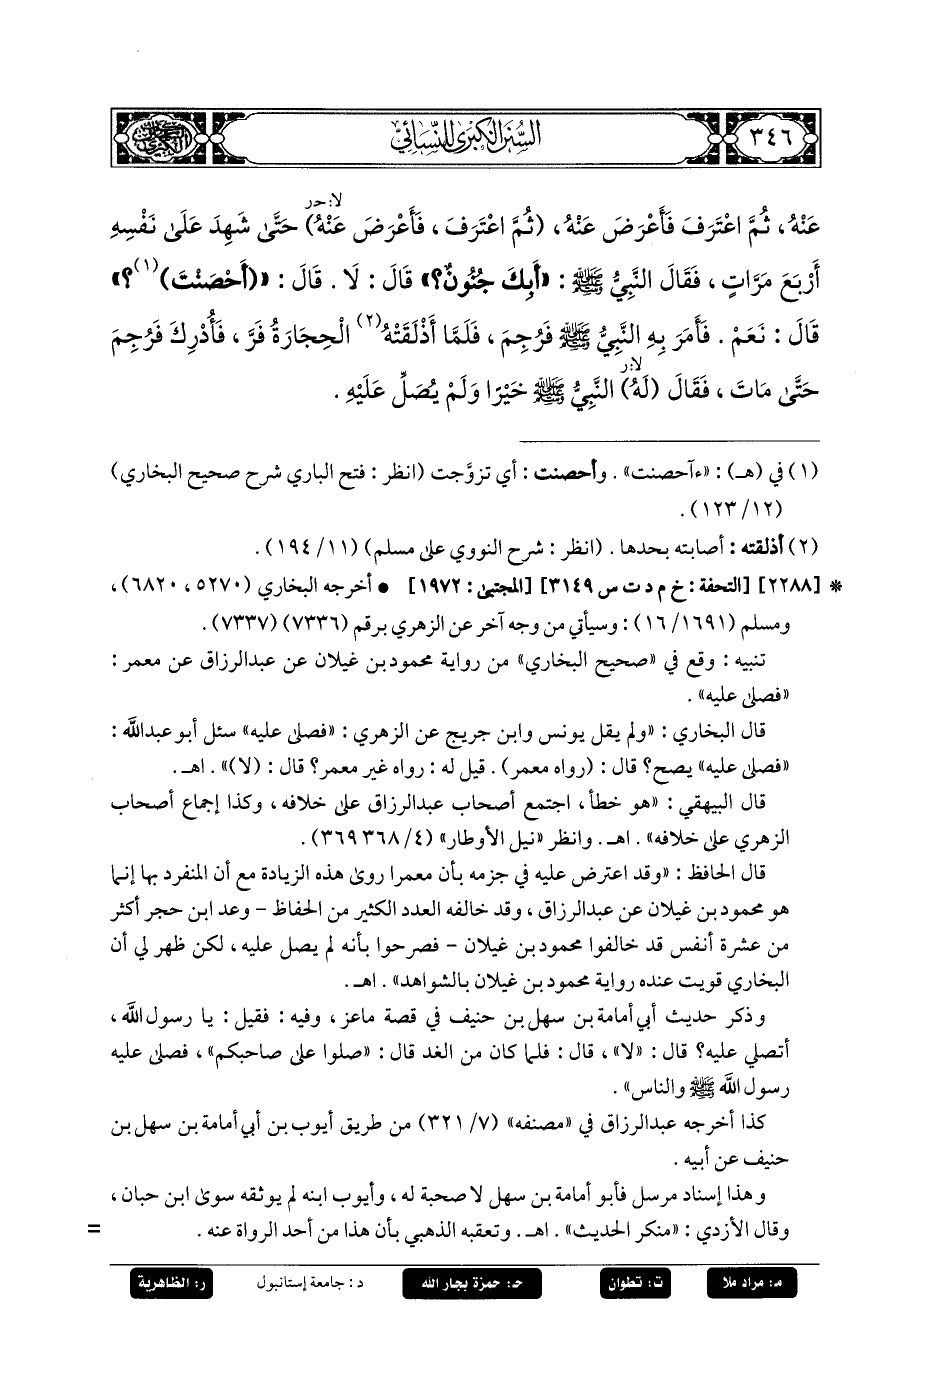 ٣٤٦
السنن الكبرى للنسائي
لا: حر
عَنْهُ، ثُمَّ اعْتَرَفَ فَأَعْرَضَ عَنْهُ، (ثُمَّ اعْتَرَفَ، فَأَعْرَضَ عَنْهُ) حَتَّى شَهِدَ عَلَى نَفْسِهِ
أَرْبَعَ مَرَّاتٍ، فَقَالَ النَّبِيُّ ﷺ: «أَبِكَ جُنُونٌ؟» قَالَ: لَا. قَالَ: «(أَحْصَنْتَ)(١)؟»
قَالَ: نَعَمْ. فَأَمَرَ بِهِ النَّبِيُّ ﷺ فَرُجِمَ، فَلَمَّا أَذْلَقَتْهُ(٢) الْحِجَارَةُ فَرَّ، فَأُدْرِكَ فَرُجِمَ
لا: ر
حَتَّى مَاتَ، فَقَالَ (لَهُ) النَّبِيُّ ﷺ خَيْرًا وَلَمْ يُصَلِّ عَلَيْهِ.
(١) في (هـ): «ءآحصنت». وأحصنت: أي تزوَّجت (انظر: فتح الباري شرح صحيح البخاري)
(١٢/ ١٢٣).
(٢) أذلقته: أصابته بحدها. (انظر: شرح النووي على مسلم) (١١/ ١٩٤).
* [٢٢٨٨] [التحفة: خ م د ت س ٣١٤٩] [المجتبى: ١٩٧٢] • أخرجه البخاري (٥٢٧٠، ٦٨٢٠)،
ومسلم (١٦٩١/ ١٦): وسيأتي من وجه آخر عن الزهري برقم (٧٣٣٦) (٧٣٣٧).
تنبيه: وقع في «صحيح البخاري» من رواية محمود بن غيلان عن عبدالرزاق عن معمر:
«فصلى عليه».
قال البخاري: «ولم يقل يونس وابن جريج عن الزهري: «فصلى عليه» سئل أبو عبدالله:
«فصلى عليه» يصح؟ قال: (رواه معمر). قيل له: رواه غير معمر؟ قال: (لا)». اهـ.
قال البيهقي: «هو خطأ، اجتمع أصحاب عبدالرزاق على خلافه، وكذا إجماع أصحاب
الزهري على خلافه». اهـ. وانظر «نيل الأوطار» (٤/ ٣٦٨ ٣٦٩).
قال الحافظ: «وقد اعترض عليه في جزمه بأن معمرا روى هذه الزيادة مع أن المنفرد بها إنما
هو محمود بن غيلان عن عبدالرزاق، وقد خالفه العدد الكثير من الحفاظ - وعد ابن حجر أكثر
من عشرة أنفس قد خالفوا محمود بن غيلان - فصرحوا بأنه لم يصل عليه، لكن ظهر لي أن
البخاري قويت عنده رواية محمود بن غيلان بالشواهد». اهـ.
وذكر حديث أبي أمامة بن سهل بن حنيف في قصة ماعز، وفيه: فقيل: يا رسول الله،
أتصلي عليه؟ قال: «لا»، قال: فلما كان من الغد قال: «صلوا على صاحبكم»، فصلى عليه
رسول الله ﷺ والناس».
كذا أخرجه عبدالرزاق في «مصنفه» (٧/ ٣٢١) من طريق أيوب بن أبي أمامة بن سهل بن
حنيف عن أبيه.
وهذا إسناد مرسل فأبو أمامة بن سهل لا صحبة له، وأيوب ابنه لم يوثقه سوى ابن حبان،
وقال الأزدي: «منكر الحديث». اهـ. وتعقبه الذهبي بأن هذا من أحد الرواة عنه. =
م: مراد ملا ت: تطوان ح: حمزة بجار الله د: جامعة إستانبول ر: الظاهرية